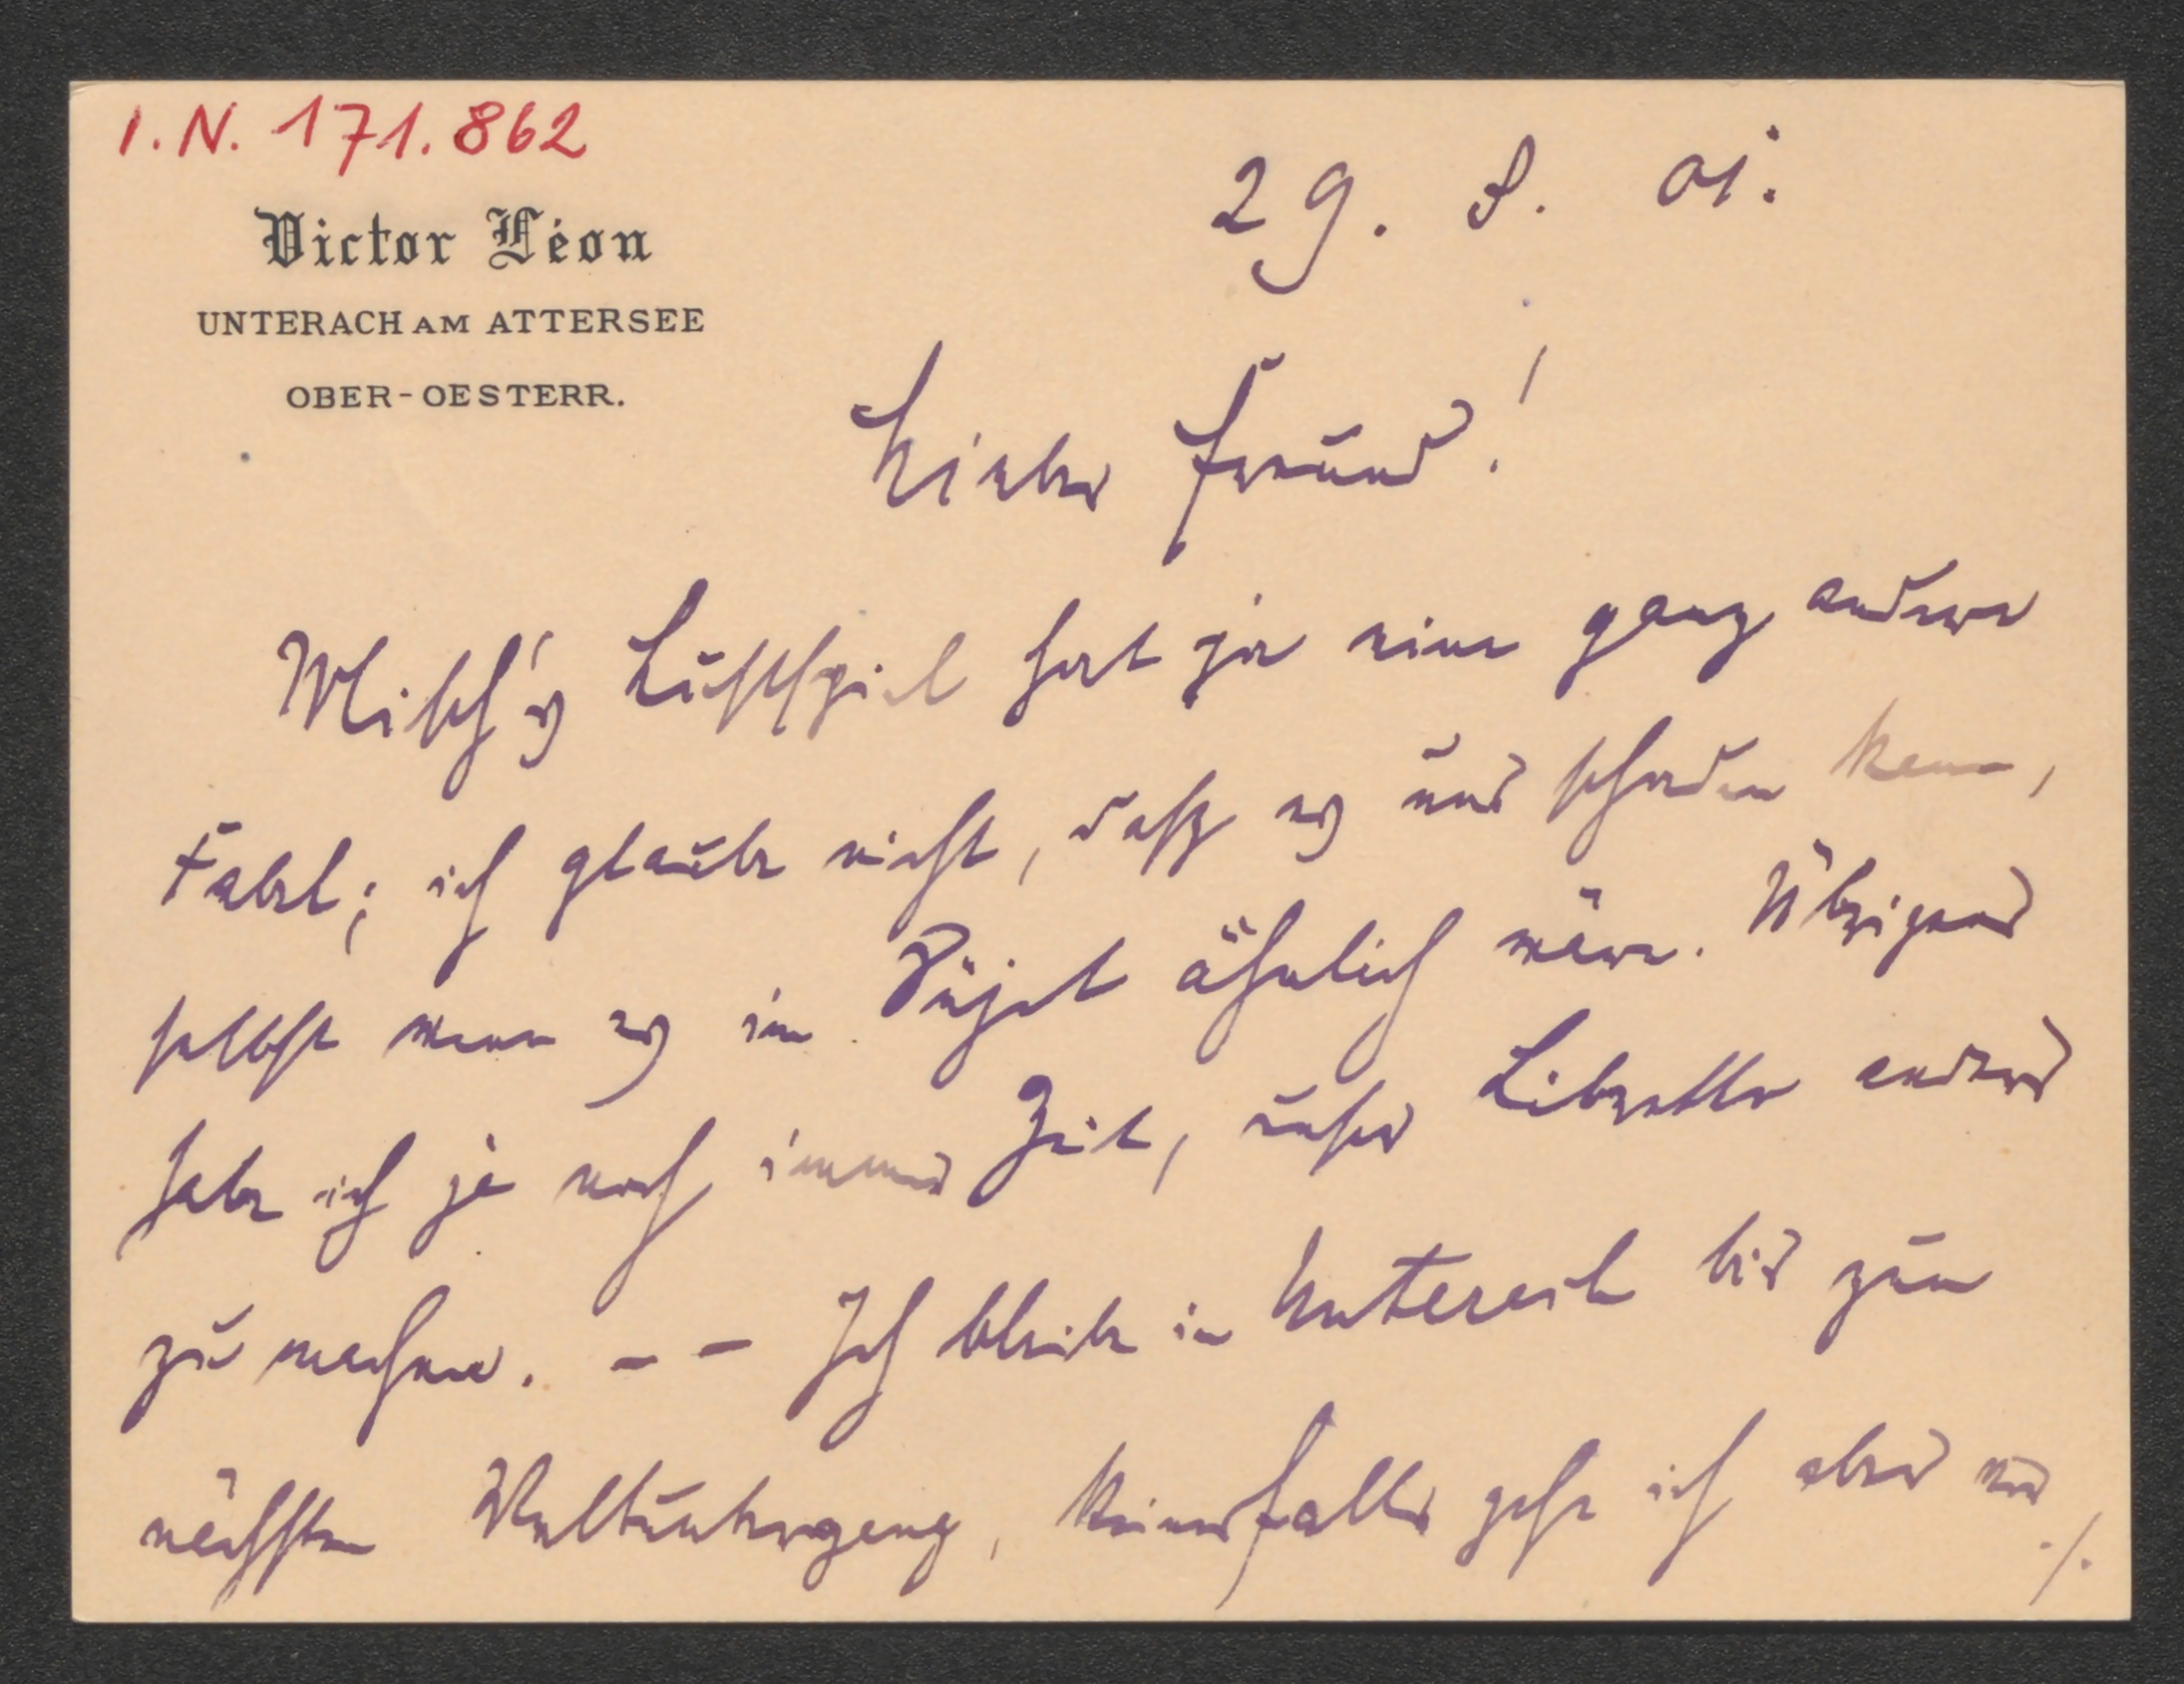 I.N. 171.862
Victor Léon
UNTERACH AM ATTERSEE
OBER-OESTERR.
29. 8. 01.
Lieber Freund!
Milch's Lustspiel hat ja eine ganz andere
Fabel; ich glaube nicht, dass es uns schaden kann,
selbst wenn es im Süjet ähnlich wäre. Übrigens
habe ich ja noch immer Zeit, unser Libretto anders
zu machen. -- Ich bleibe in Unterach bis zum
nächsten Weltuntergang, keinesfalls gehe ich aber vor
./.